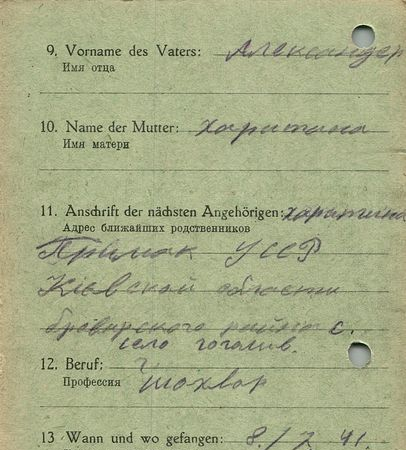 9. Vorname des Vaters: Александер
Имя отца
10. Name der Mutter: Харитина
Имя матери
11. Anschrift der nächsten Angehörigen: Харитина
Адрес ближайших родственников
Примак УССР
Кіевской области
броварского района с.
село гоголив
12. Beruf:
Профессия
13 Wann und wo gefangen: 8./7 41.